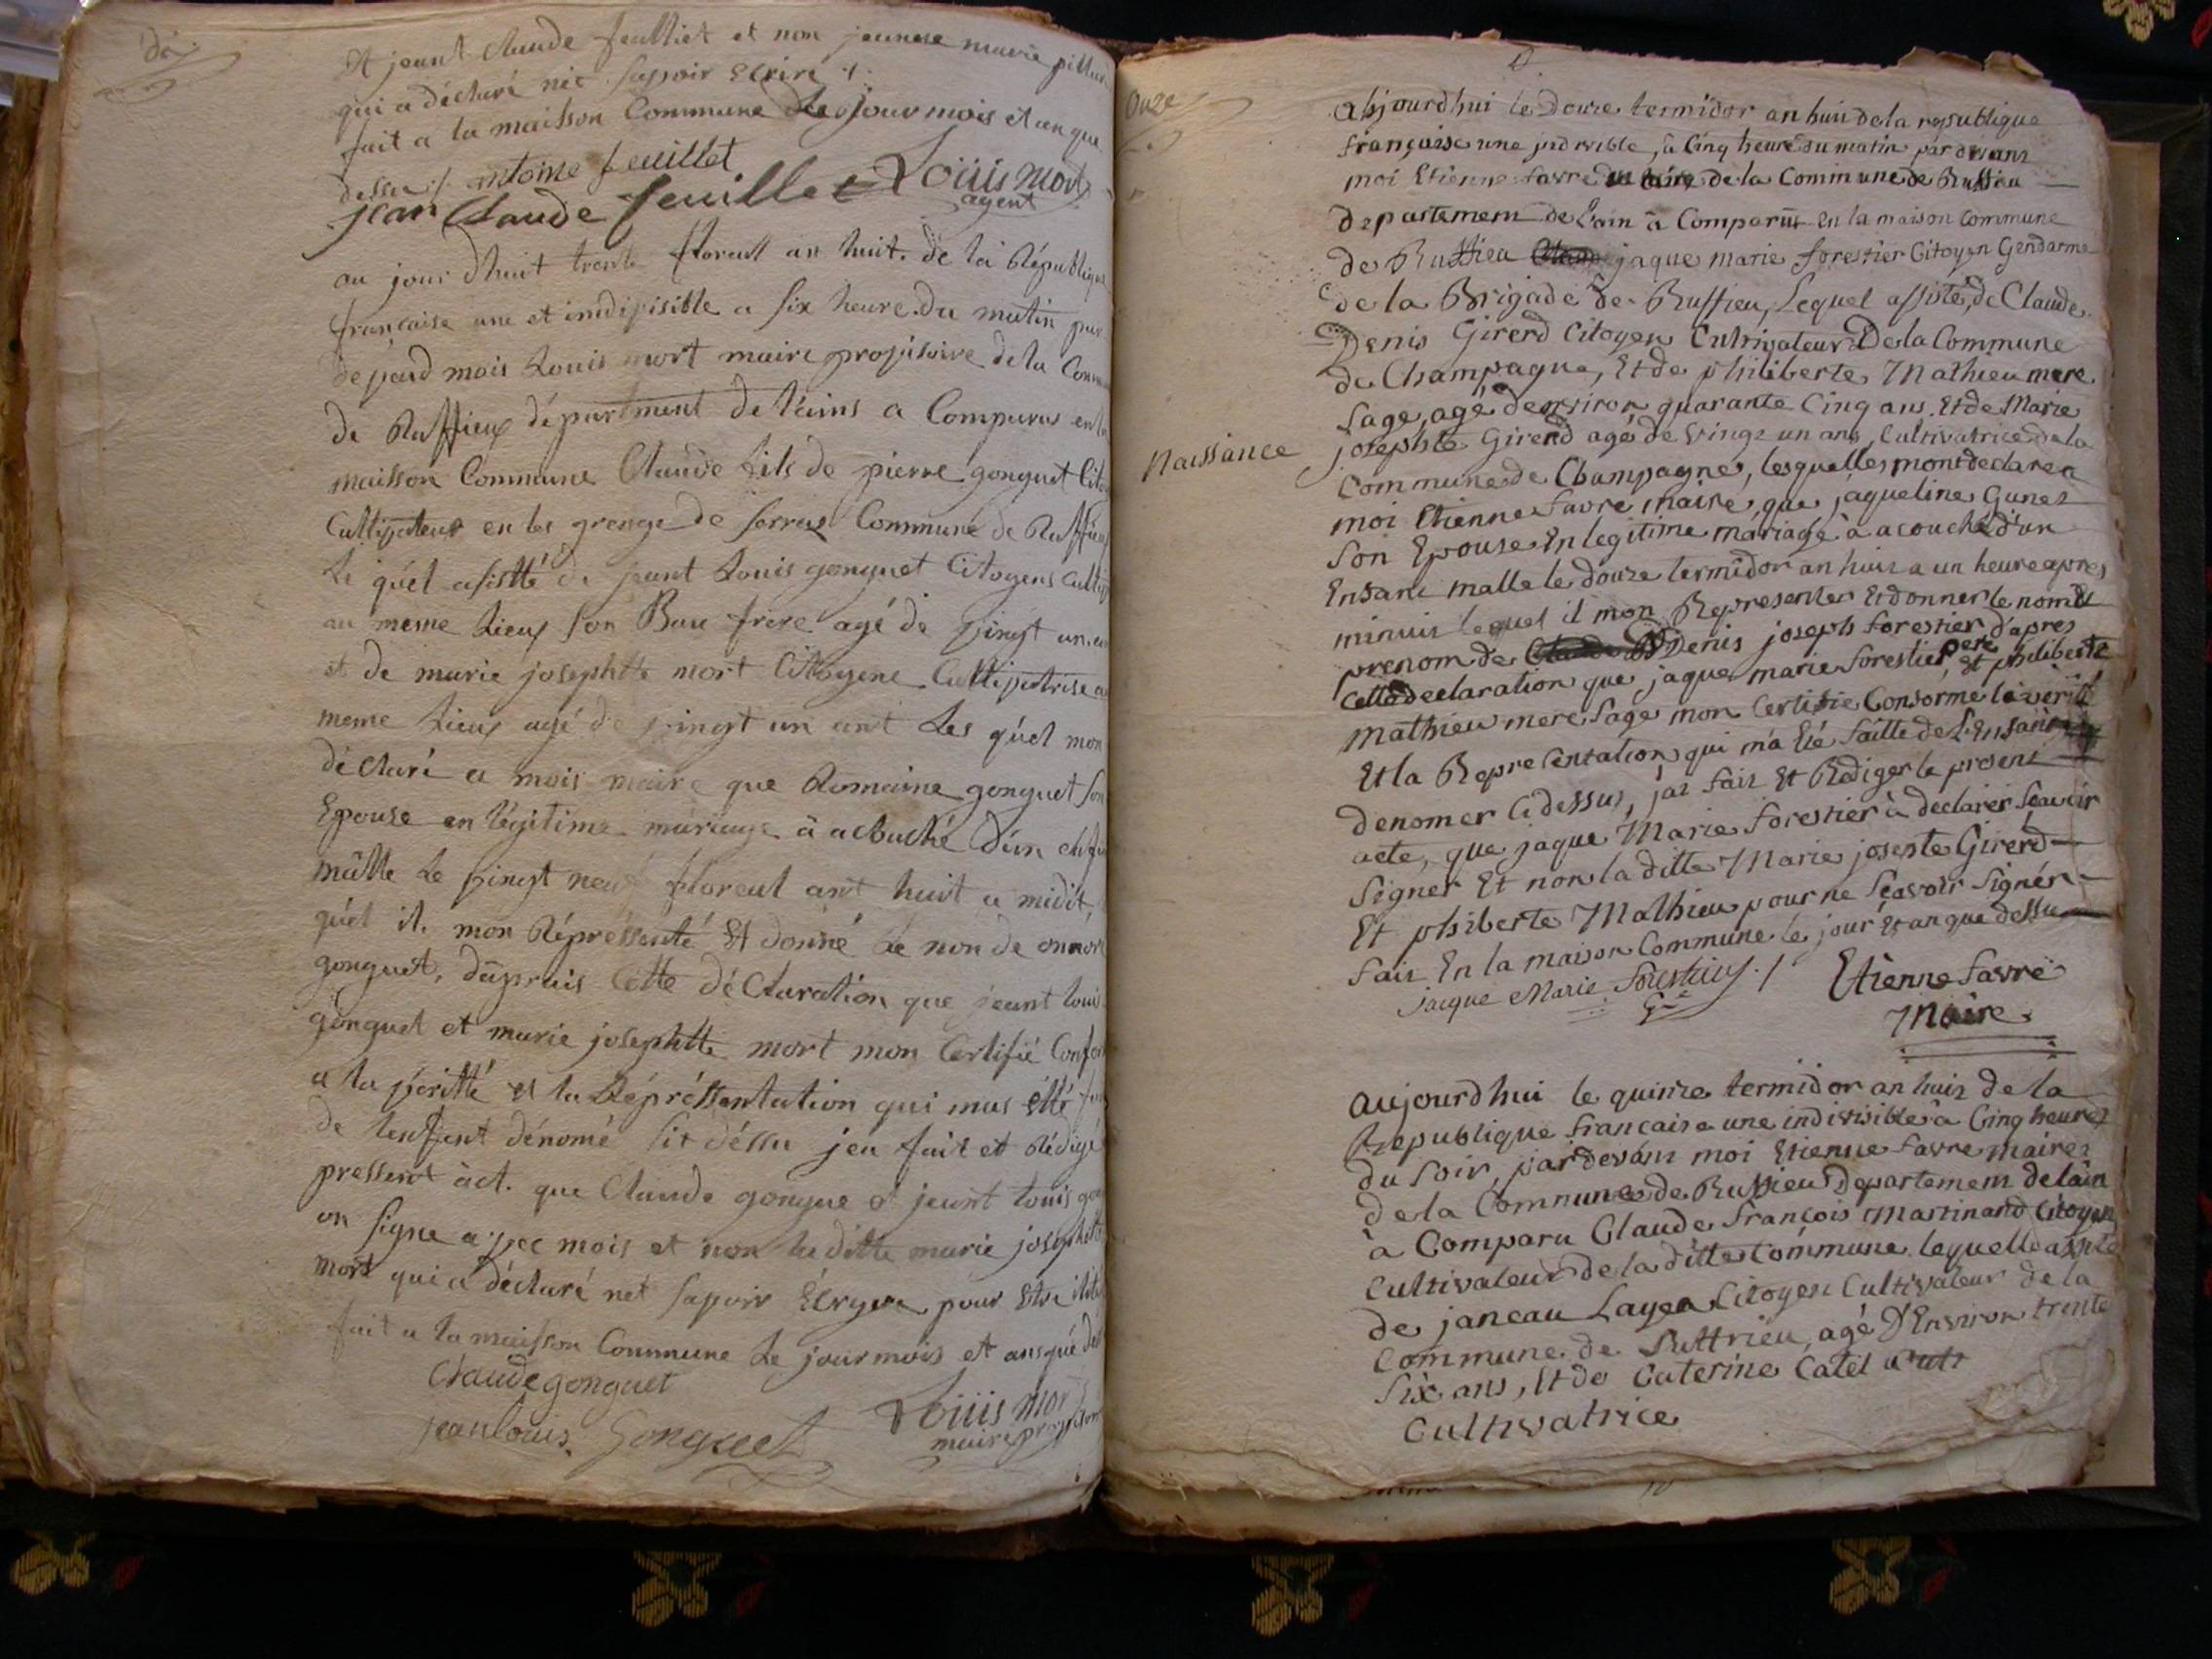 dix
Et jeant Claude feulliet et non jeanne marie
qui a déclaré net sapoir Ecriré
fait a la maisson Commune Le jour mois et an que
dessu antoine feuillet
jean Claude feuillet Louis mort
agent
au jour dhuit trente floreall an huit de la Républiqu
francaise une et indipisible a six heure du mutin par
depend mois Louis mort maire propisoire de la Commu
de Ruffieux département de l'ains a Comparus en la
maisson Commune Claude fils de pierre gonguet Cito
Cultipateur en les grenge de serras Commune de Ruffieu
Le quél asistté de jeant Louis gonguet Citoyens Cultip
au meme Lieux son Bau frere agé de pingt un an
et de marie josephtte mort Citoyene Cultipatrise au
meme Lieux agé de pingt un ant Les quél mon
déClaré a mois maire que Romaine gonguet son
Epouse en légitime mariage à acbuché d'un enf
mâlle Le pingt neuf floreal ant huit a midit,
quél il mon Réprésenté Et donné Le non de
gonguet, daprais Cette déClaration que jeant loui
gonguet et marie josephtte mort mon Certifié Confor
a la péritté et la Répréssentation qui mas étté
de lenfant dénomé sit déssu jeu fait et Rédigé
pressent àct. que Claude gongue et jeant louis gon
on signe a pec mois et non la ditte marie josephtte
mort qui a déclaré net sapoir Ecryre pour Etre
fait a la maisson Commune Le jour mois et ans qué dé
Claude gonguet
jean louis Gonguet Louis mor
maire
onze
naissance
aujourdhui le douze termidor an huit de la republique
françoise une indivisible, à Cinq heure du matin pardevant
moi Etienne favre maire de la Commune de Ruffieu
departement de Lain à Comparut En la maison Commune
de Ruffieu jaque marie forestier Citoyen Gendarme
de la Brigade de Ruffieu, Lequel assisté, de Claude
Denis Girerd Citoyen Cultivateur De la Commune
de Champagne, Et de philiberte Mathieu mere
sage, agé denviron quarante Cinq ans, Et de Marie
josephte Girerd agé de vingt un ans, Cultivatrice de la
Commune de Champagne, lesquelles mont declare a
moi Etienne favre maire, que jaqueline Gunet
son Epouse En legitime mariage à acouché d'un
Enfant malle le douze termidor an huit a un heure apres
minuit lequel il mon Representer Et donner le nom et
prenom de Denis joseph forestier d'apres
cette declaration que jaque marie forestier pere et philiberte
mathieu mere sage mon Certifie Conforme la verité
Et la Representation qui m'a Eté faitte de L'Enfant
denomer Cidessus, jai fait Et Rediger le present
acte, que jaque Marie forestier à declarer scavoir
signer Et non la ditte Marie josepte Girerd
Et philiberte Mathieu pour ne scavoir signér
fait En la maison Commune le jour et an que dessu
jacque Marie Forestier Etienne favre
Maire
Aujourdhui le quinze termidor an huit de la
Republique francaise une indivisible à Cinq heures
du soir, pardevant moi Etienne favre maire
de la Commune de Ruffieu departement de lain
à Comparu Claude françois Martinand Citoyen
Cultivateur de la ditte Commune lequelle assiste
de janeau Layer Citoyen Cultivateur de la
Commune de Suttrieu, agé d'Environ trente
six ans, Et de Caterine Catel
Cultivatrice